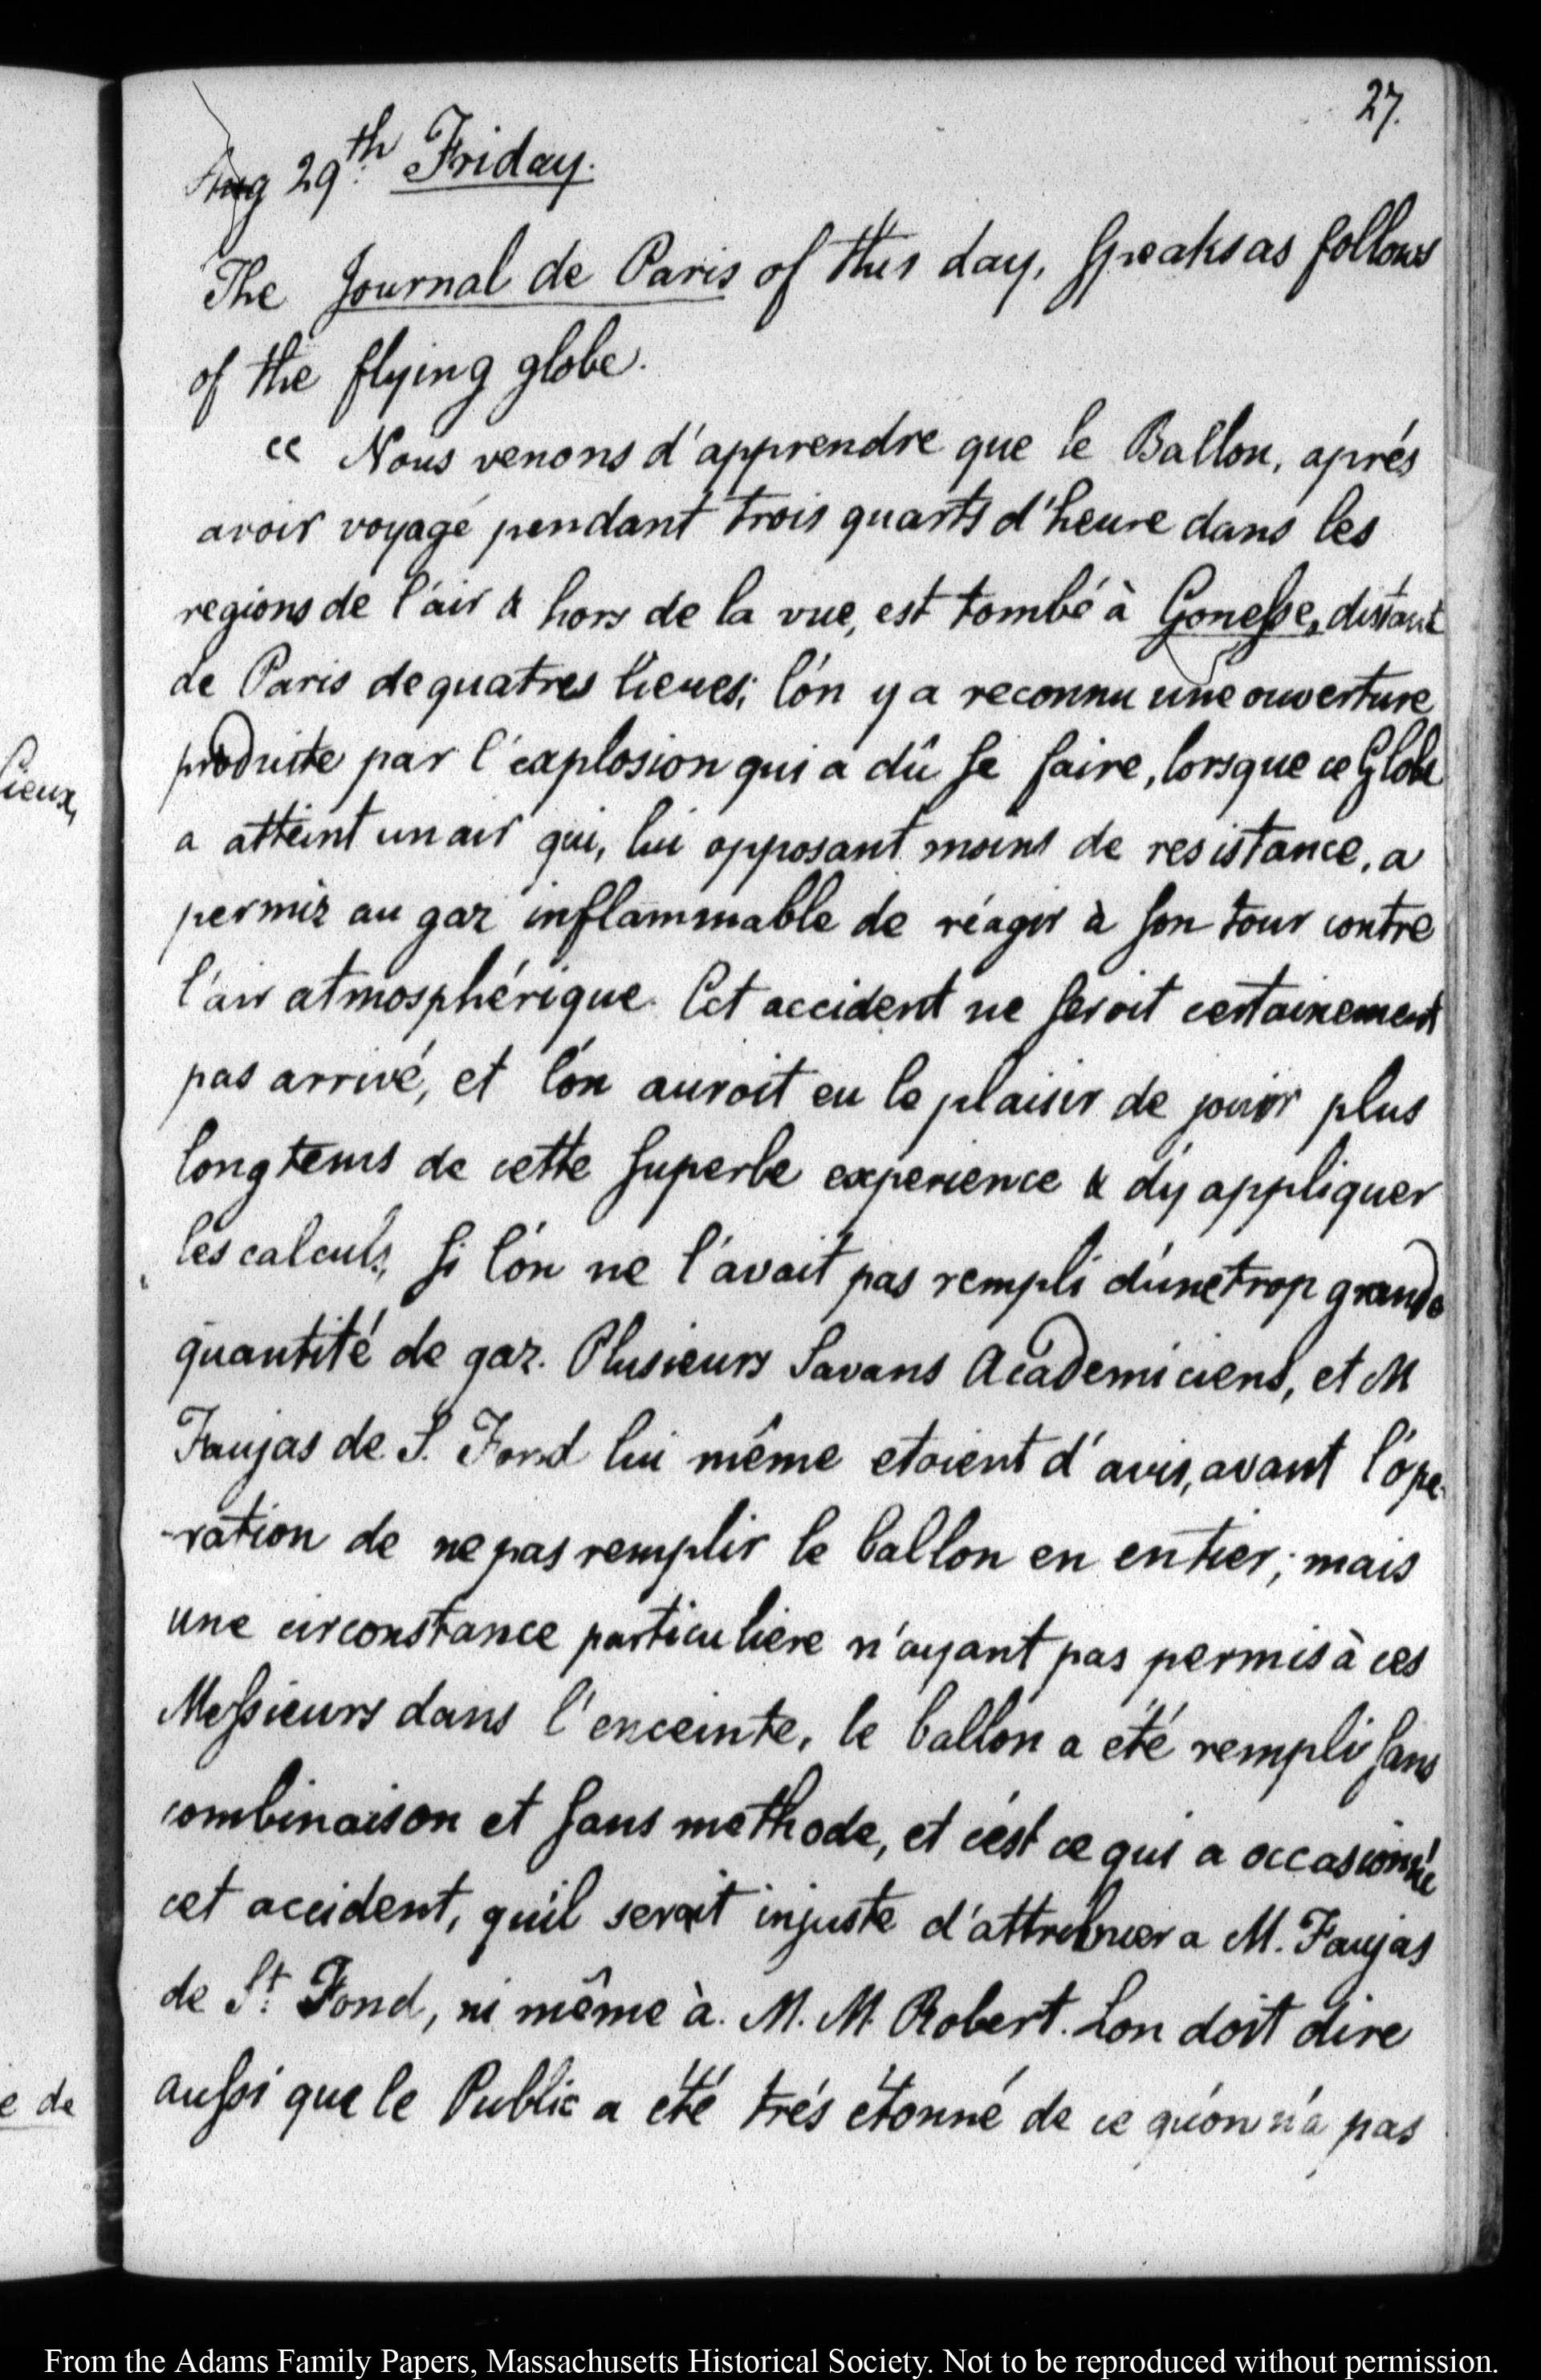 27.
Aug 29th. Friday.
The Journal de Paris of this day, speaks as follows
of the flying globe.
" Nous venons d'apprendre que le Ballon, aprés
avoir voyagé pendant trois quarts d'heure dans les
regions de l'air & hors de la vue, est tombé à Gonesse, distant
de Paris de quatres lieues; l'on y a reconnu une ouverture
produite par l'explosion qui a dû se faire, lorsque ce Globe
a atteint un air qui, lui opposant moins de resistance, a
permis au gaz inflammable de réagir à son tour contre
l'air atmosphérique. Cet accident ne seroit certainement
pas arrivé, et l'on auroit eu le plaisir de jouir plus
longtems de cette superbe experience & d'y appliquer
les calculs, si l'on ne l'avait pas rempli d'une trop grande
quantité de gaz. Plusieurs Savans Academiciens, et M
Faujas de S. Fond lui même etoient d'avis, avant l'ope-
-ration de ne pas remplir le ballon en entier; mais
une circonstance particuliere n'ayant pas permis à ces
Messieurs dans l'enceinte, le ballon a été rempli sans
combinaison et sans methode, et c'est ce qui a occasionné
cet accident, qu'il serait injuste d'attribuer a M. Faujas
de St. Fond, ni même à M. M. Robert. Lon doit dire
aussi que le Public a été trés étonné de ce qu'on n'a pas
lieux,
e de
From the Adams Family Papers, Massachusetts Historical Society. Not to be reproduced without permission.